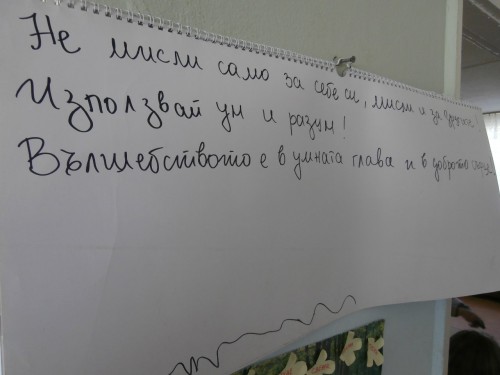 Не мисли само за себе си, мисли и за другите.
Използвай ум и разум!
Вълшебството е в умната глава и в доброто сърце